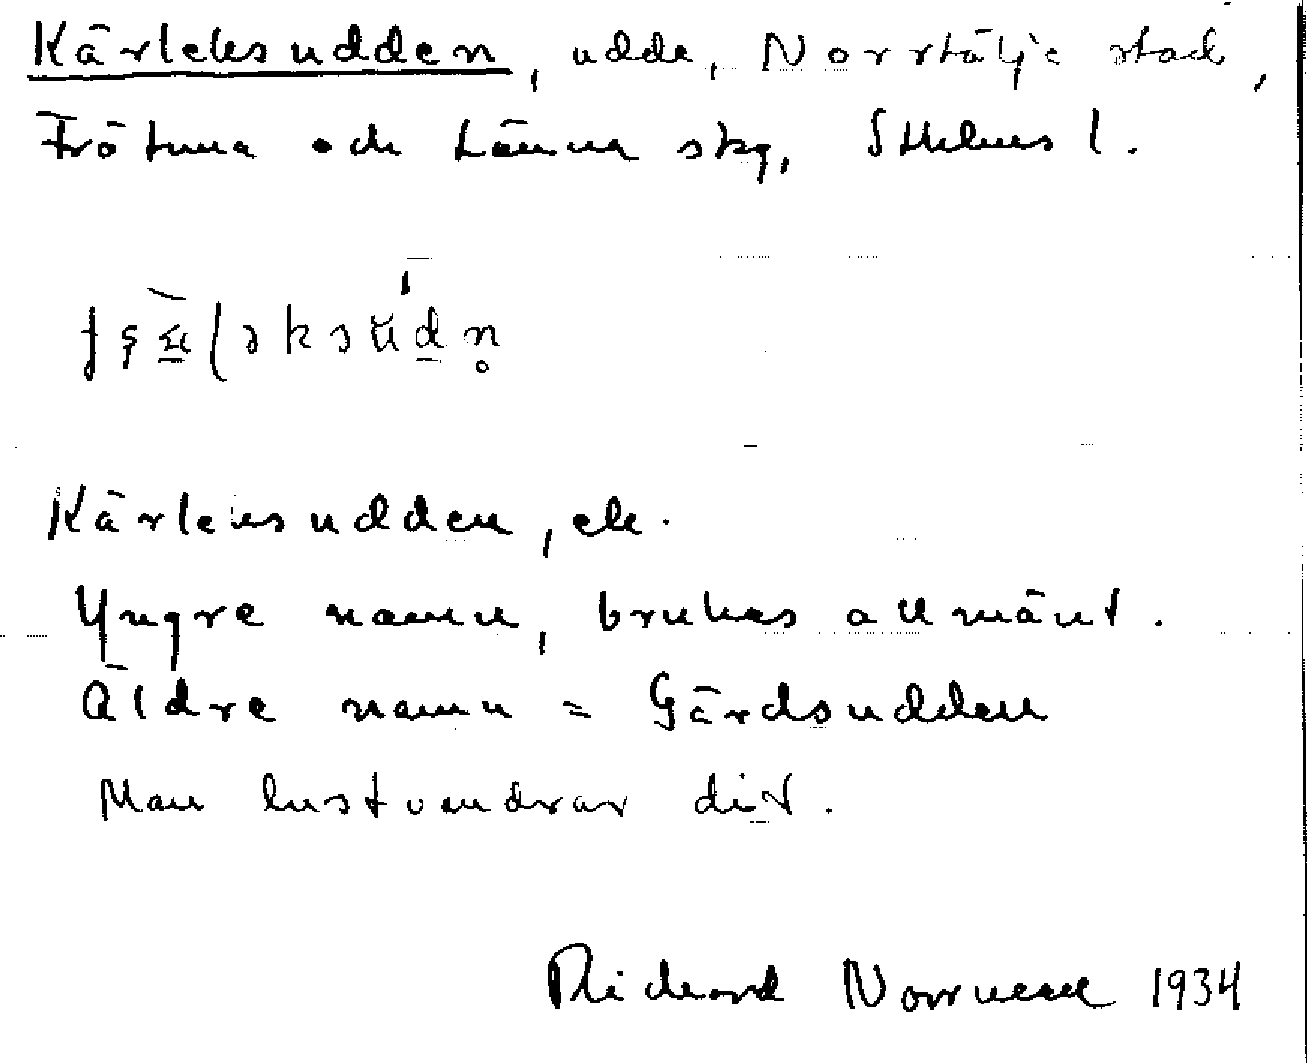 Kärleksudden, udde, Norrtälje stad,
Frötuna och Länna skg, Sthlms l.
Kärleksudden, ele.
Yngre namn, brukas allmänt.
Äldre namn = Gärdsudden
Man lustvandrar dit.
Richard Norrman 1934